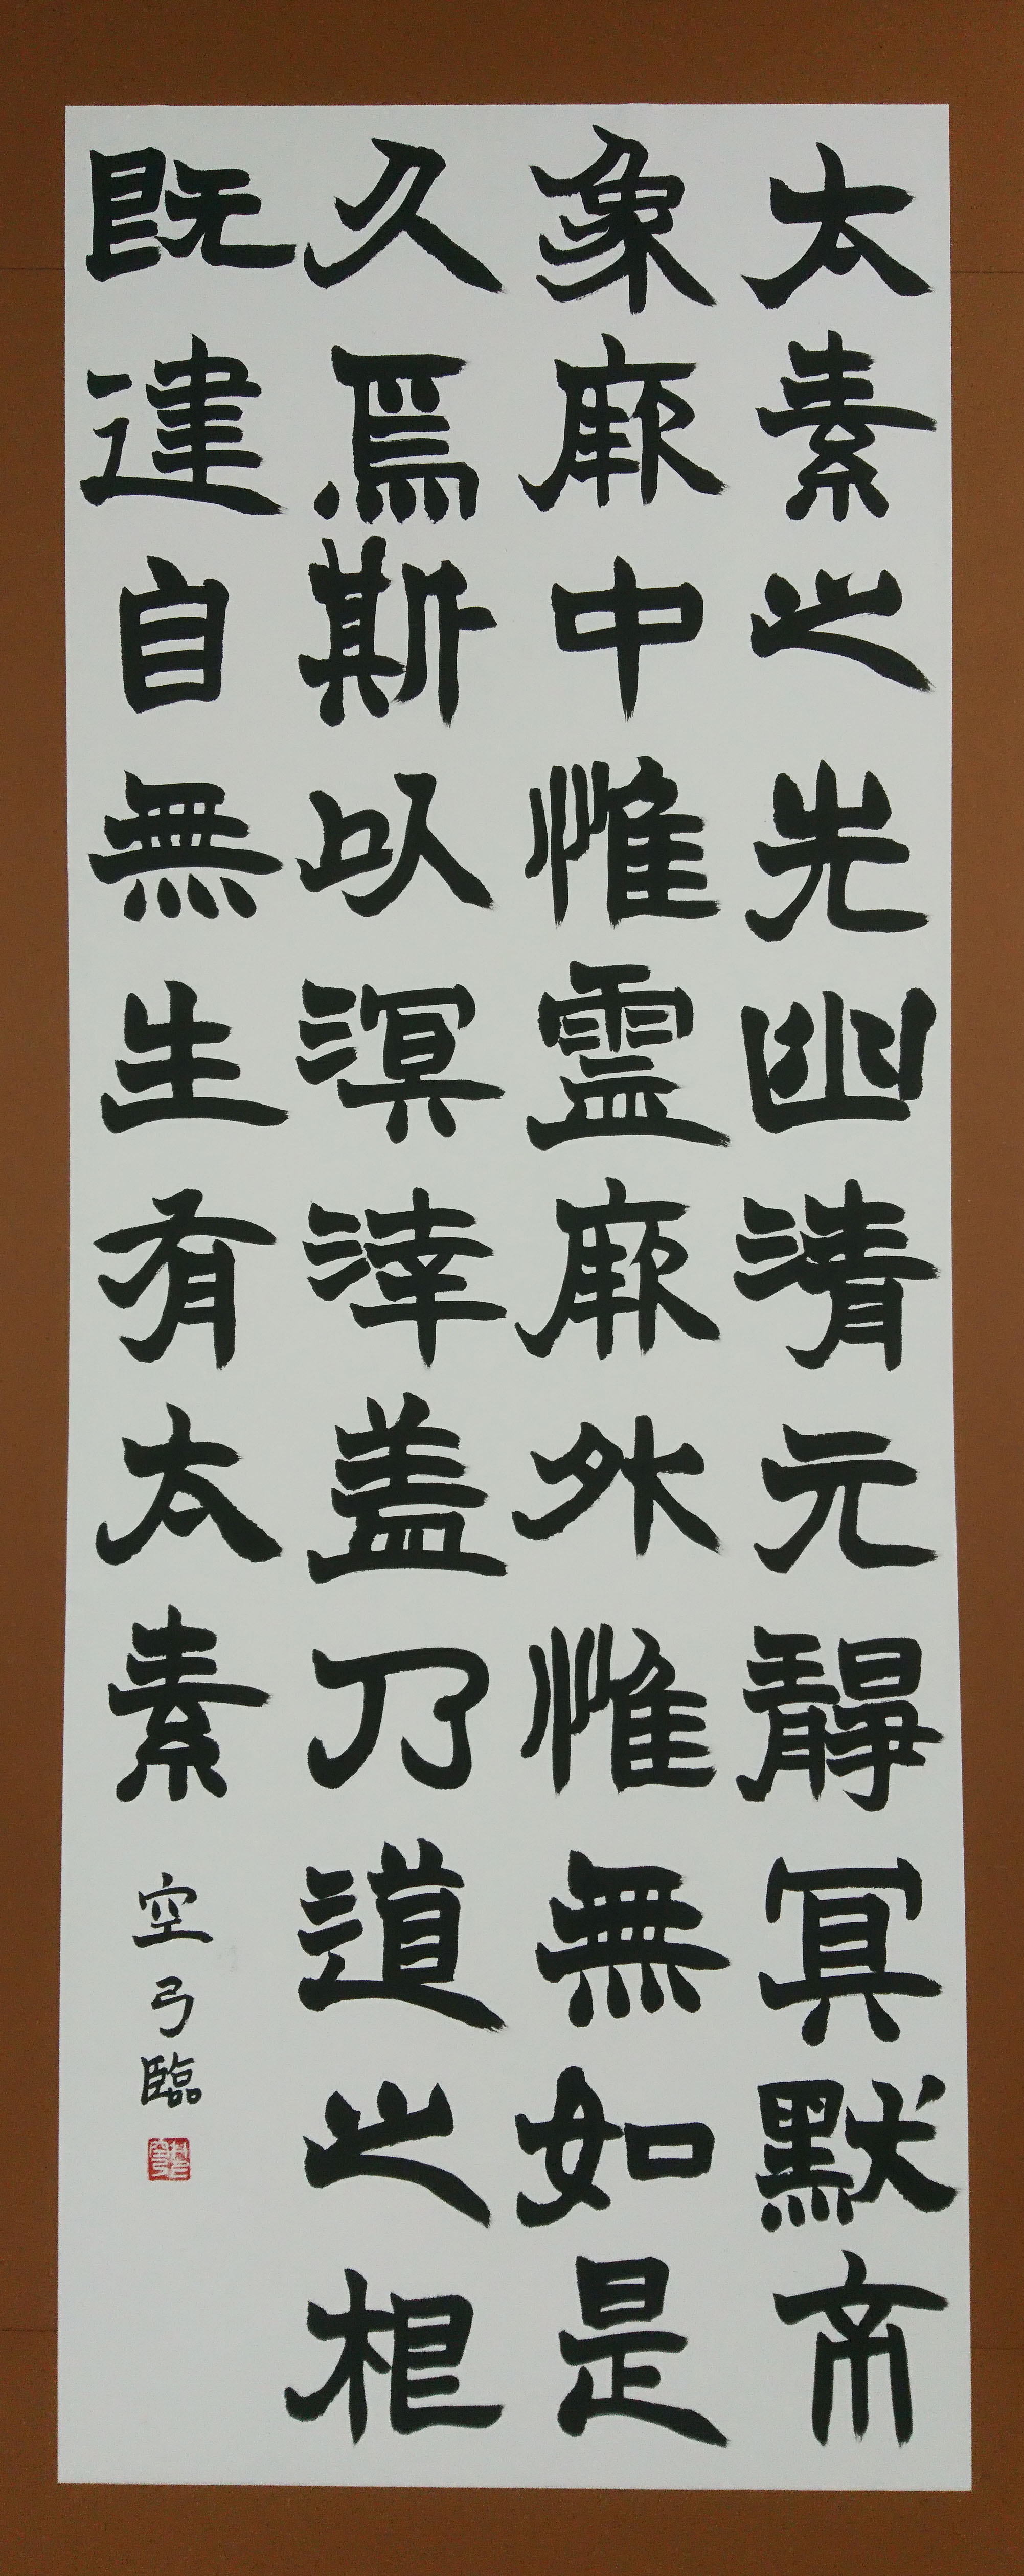 太素之先幽清元靜冥默帝
象厥中惟霊厥外惟無如是
久焉斯以溟涬盖乃道之根
既建自無生有太素
空弓臨